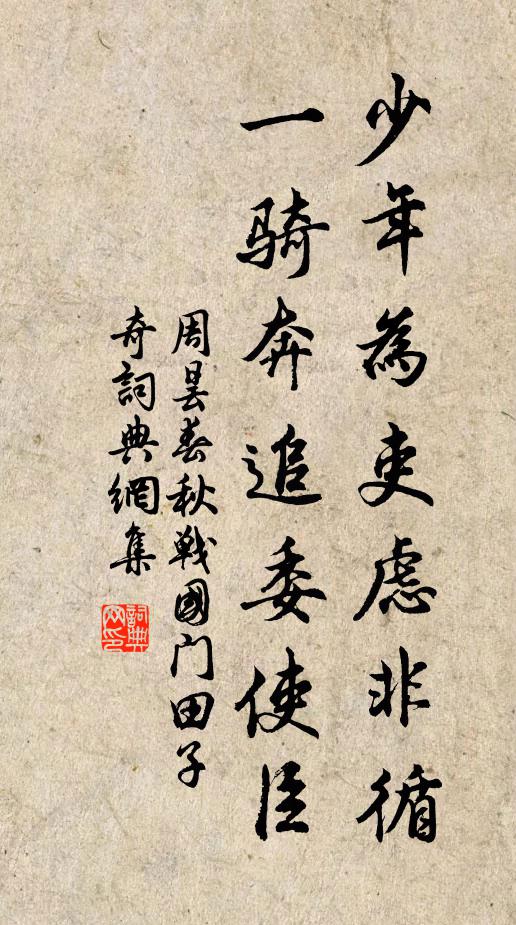 少年為吏慮非循
一騎奔追委使臣
周曇春秋戰國门田子
奇詞典網集
詞典网印